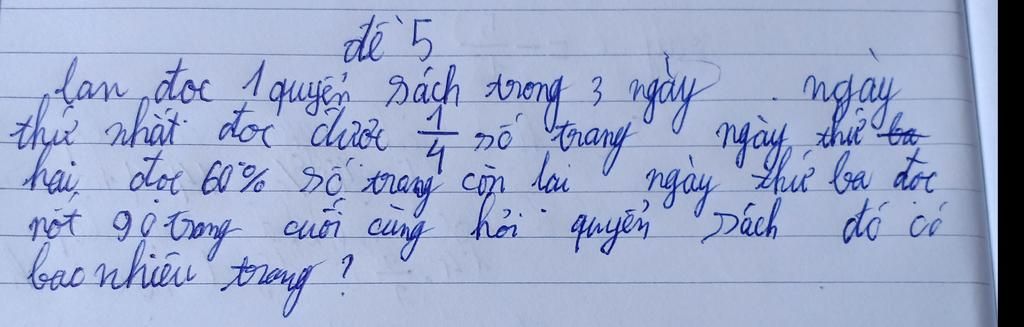 đề 5
Lan đọc 1 quyển sách trong 3 ngày. ngày
thứ nhất đọc được 1/4 số trang ngày thứ ba
hai đọc 60% số trang còn lại ngày thứ ba đọc
nốt 90 trang cuối cùng hỏi quyển sách đó có
bao nhiêu trang?